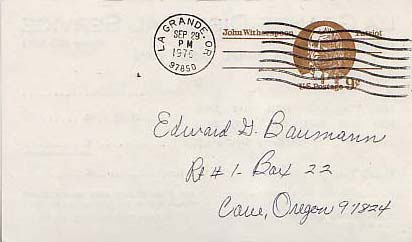 LA GRANDE, OR
SEP 29
PM
1976
97850
John Witherspoon Patriot
U.S. Postage 9¢
Edward G. Baumann
Rt #1- Box 22
Cove, Oregon 97824